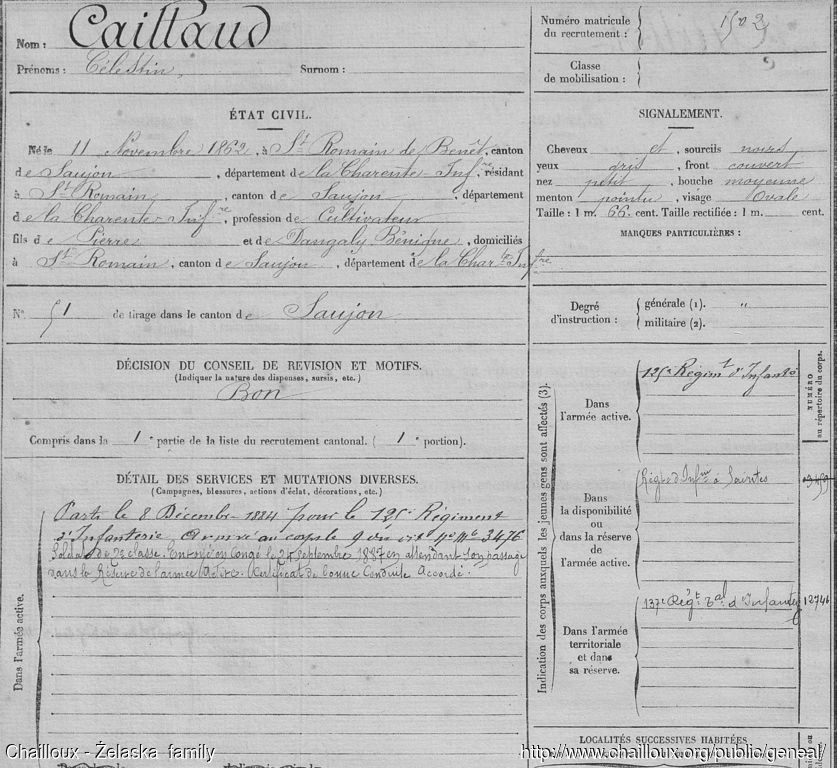 Nom : Caillaud
Prénoms : Célestin, Surnom :
ÉTAT CIVIL.
Né le 11 Novembre 1862, à St Romain de Benêt, canton
de Saujon, département de la Charente-Infre, résidant
à St Romain, canton de Saujon, département
de la Charente-Infre, profession de Cultivateur
fils de Pierre et de Dangaly Bénigne, domiciliés
à St Romain, canton de Saujon, département de la Charte Infre
No 51 de tirage dans le canton de Saujon
DÉCISION DU CONSEIL DE REVISION ET MOTIFS.
(Indiquer la nature des dispenses, sursis, etc.)
Bon
Compris dans la 1e partie de la liste du recrutement cantonal. (1e portion).
DÉTAIL DES SERVICES ET MUTATIONS DIVERSES.
(Campagnes, blessures, actions d'éclat, décorations, etc.)
Dans l'armée active.
Parti le 8 Décembre 1884 pour le 125e Régiment
d'Infanterie. Arrivé au corps le 9 du dit No Mle 3476
Soldat de 2e classe. Envoyé en Congé le 24 Septembre 1887 en attendant son passage
dans la Réserve de l'armée Active. Certificat de bonne Conduite Accordé.
Numéro matricule
du recrutement : 1502
Classe
de mobilisation :
SIGNALEMENT.
Cheveux et, sourcils noirs
yeux gris, front couvert
nez petit, bouche moyenne
menton pointu, visage Ovale
Taille : 1 m. 66 cent. Taille rectifiée : 1 m. cent.
MARQUES PARTICULIÈRES :
Degré
d'instruction :
générale (1). "
militaire (2).
Indication des corps auxquels les jeunes gens sont affectés (3).
NUMÉRO
au répertoire du corps.
Dans
l'armée active.
125e Régimt d'Infantie
Dans
la disponibilité
ou
dans la réserve
de
l'armée active.
d'Infrie à Saintes
Dans l'armée
territoriale
et dans
sa réserve.
137e Régt Tal d'Infanterie
12746
LOCALITÉS SUCCESSIVES HABITÉES
Chailloux - Żelaska family
http://www.chailloux.org/public/geneal/